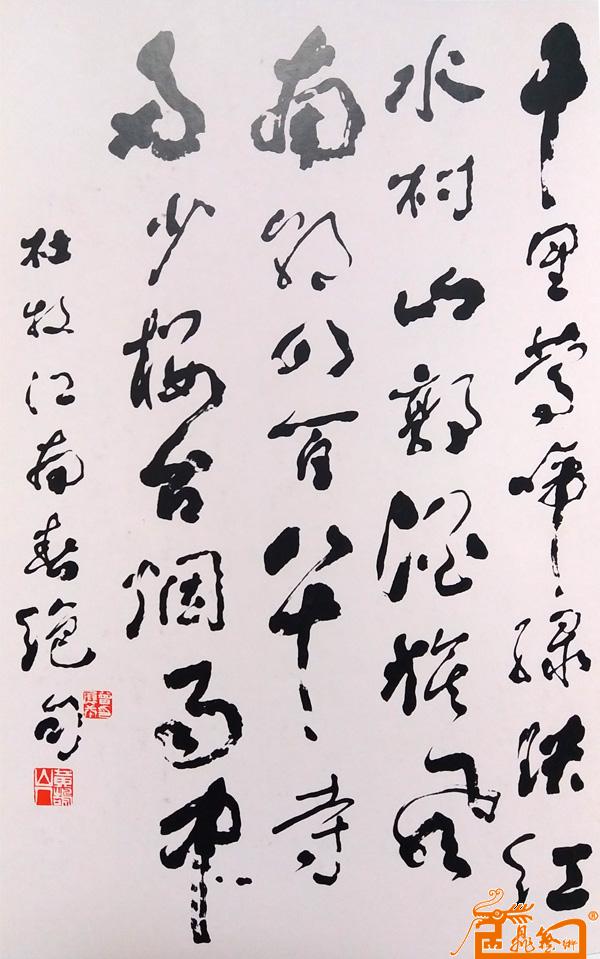 千里莺啼绿映红
水村山郭酒旗风
南朝四百八十寺
多少楼台烟雨中
杜牧江南春绝句